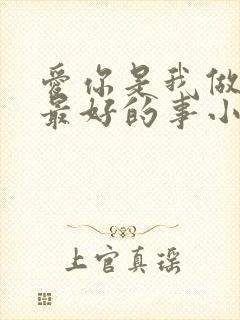 爱你是我做
最好的事小
上官真瑶